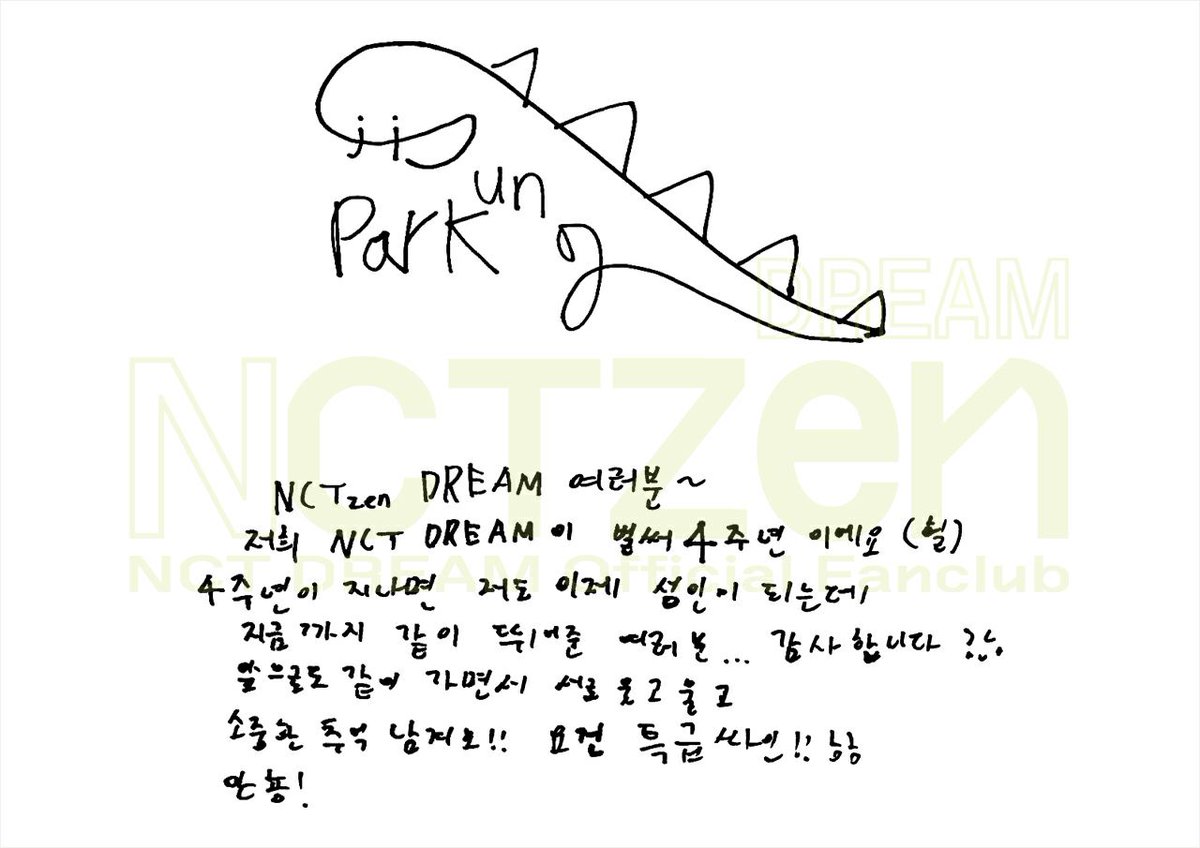 jisung
Park
DREAM
NCTzen
NCT DREAM Official Fanclub
NCTzen DREAM 여러분~
저희 NCT DREAM이 벌써 4주년 이에요 (헐)
4주년이 지나면 저도 이제 성인이 되는데
지금까지 같이 뛰어준 여러분... 감사합니다
앞으로도 같이 가면서 서로 웃고 울고
소중한 추억 남겨요!! 요건 특급싸인!! ㅎㅎ
안뇽!